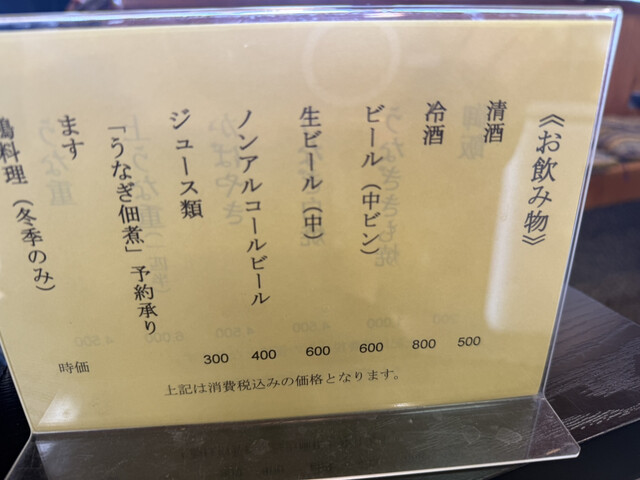 《お飲み物》
清酒 500
冷酒 800
ビール（中ビン） 600
生ビール（中） 600
ノンアルコールビール 400
ジュース類 300
「うなぎ佃煮」予約承り
ます
鴨料理（冬季のみ） 時価
上記は消費税込みの価格となります。